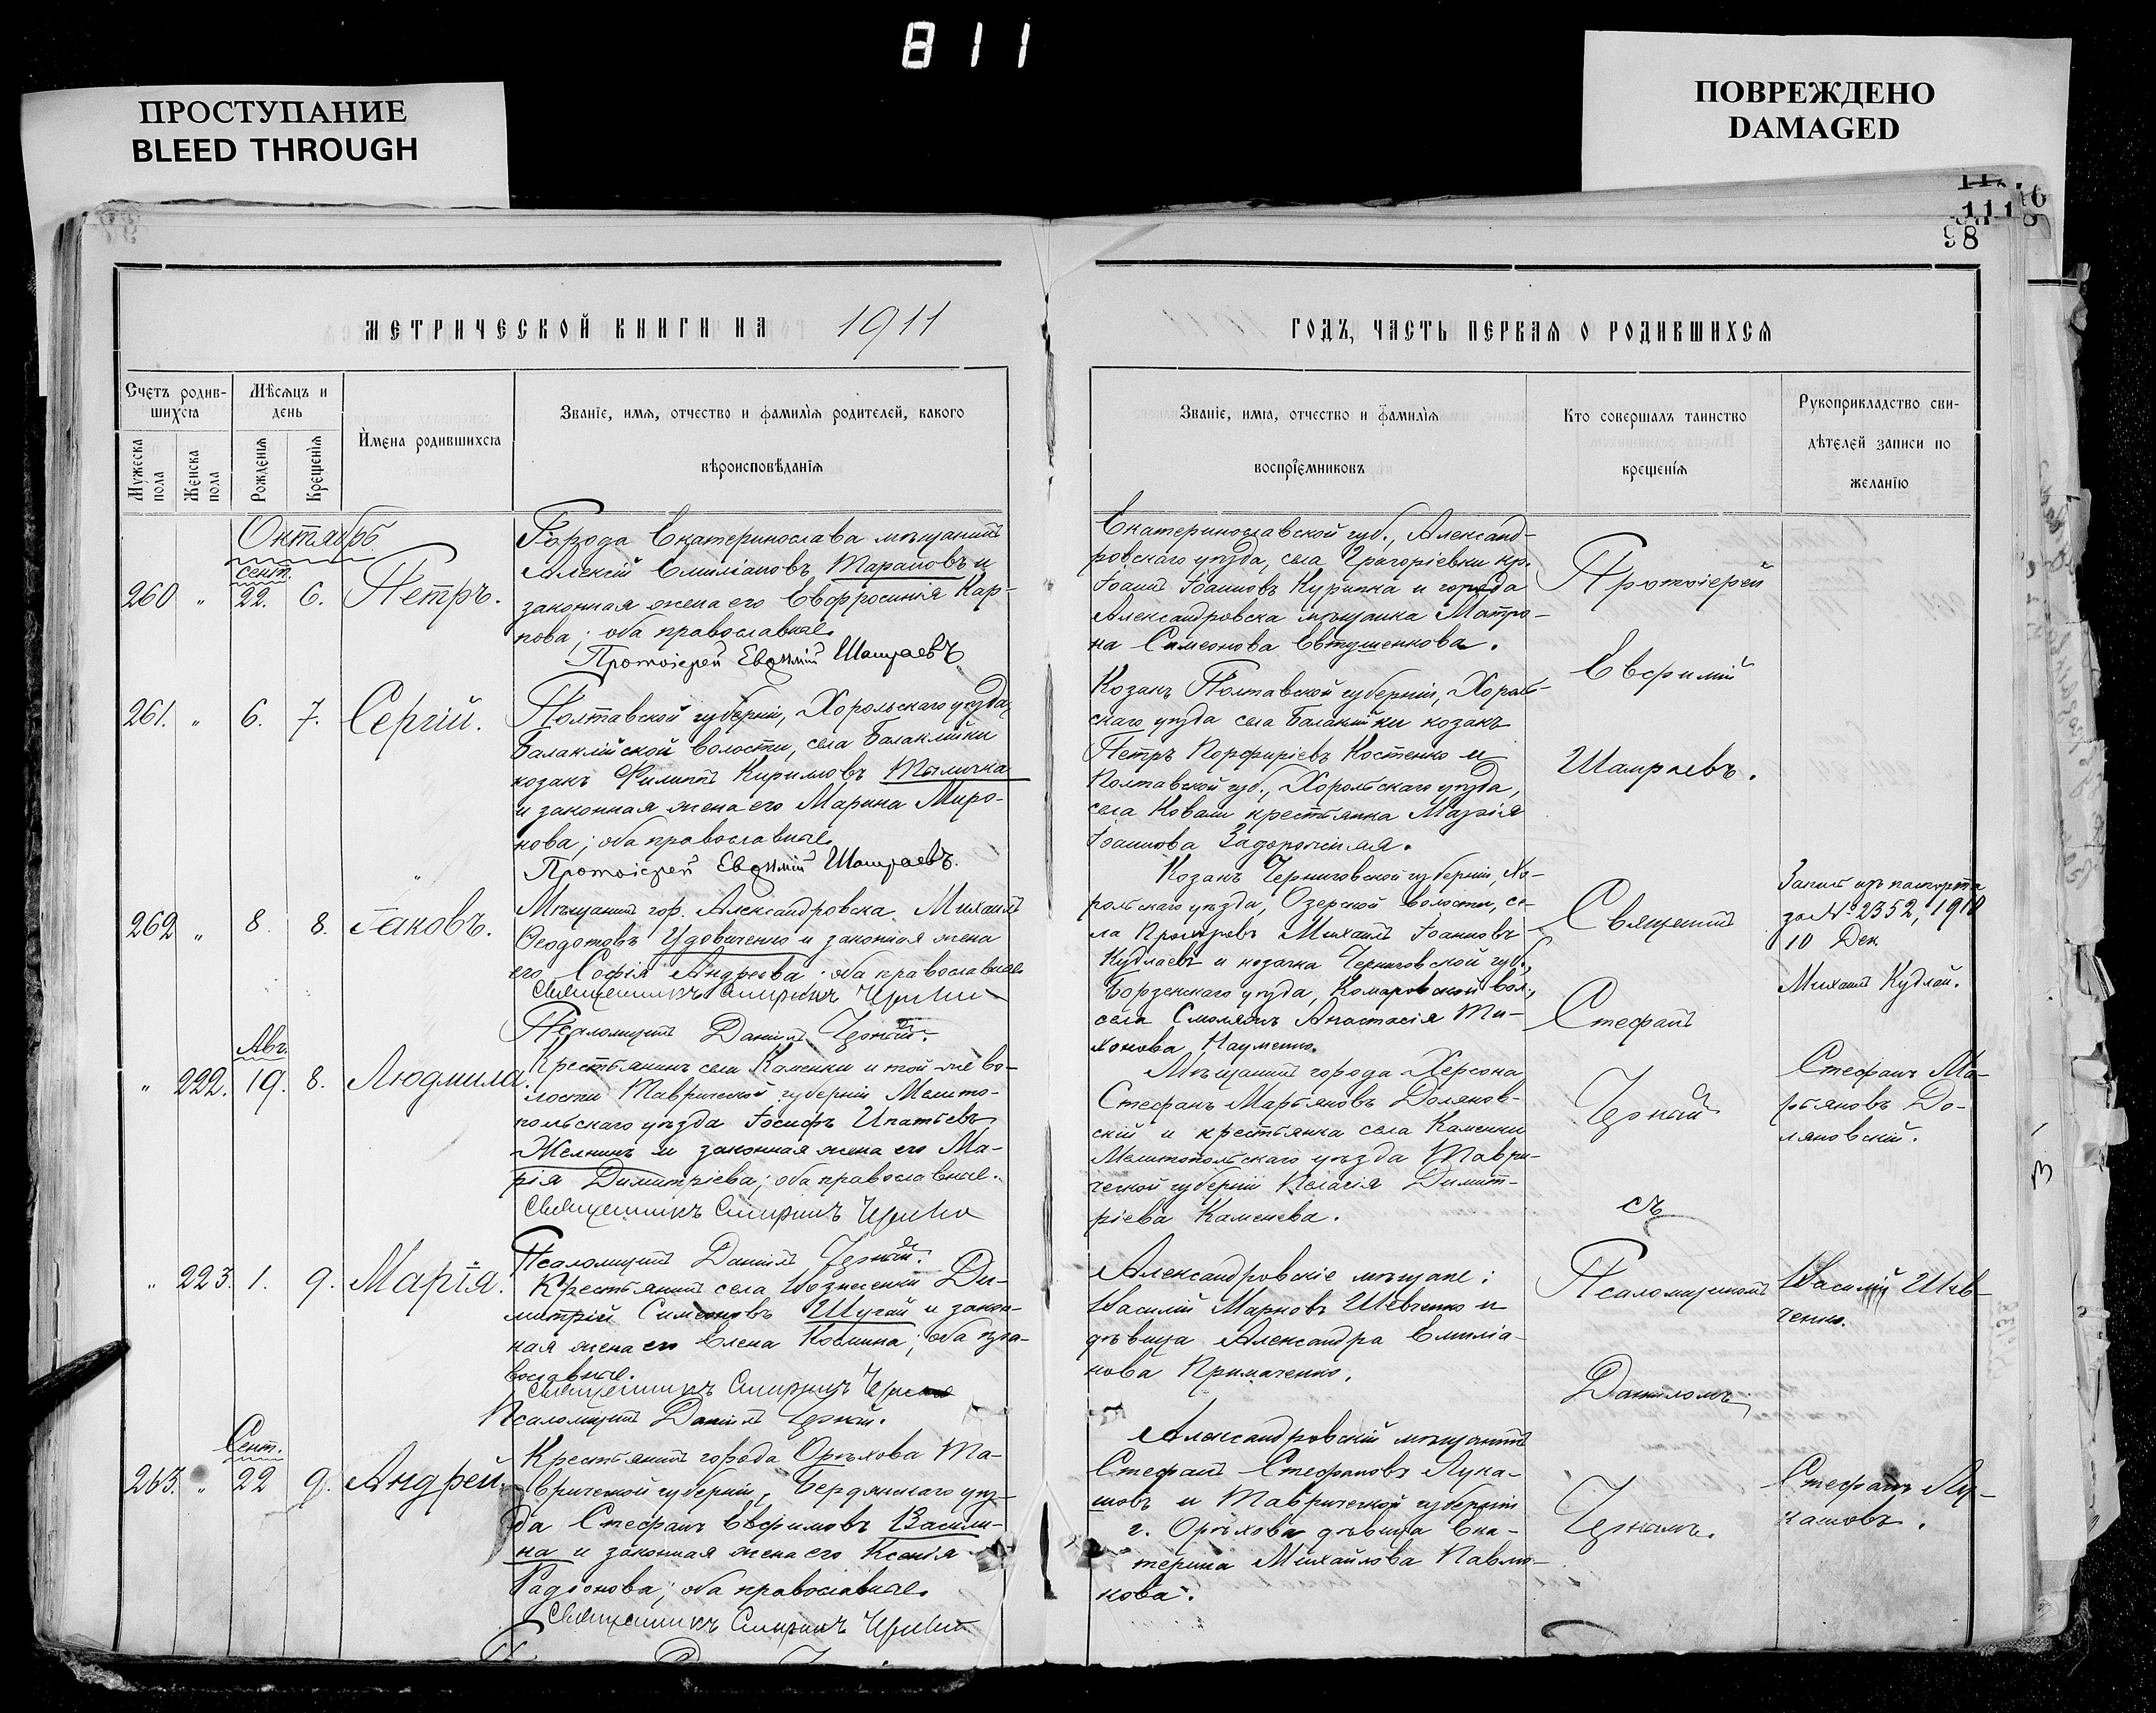 811
ПРОСТУПАНИЕ
BLEED THROUGH
ПОВРЕЖДЕНО
DAMAGED
111
98
МЕТРИЧЕСКОЙ КНИГИ НА 1911
ГОДЪ, ЧАСТЬ ПЕРВАЯ О РОДИВШИХСЯ
Счетъ родив-
шихся
Мужеска пола
Женска пола
Мѣсяцъ и
день
Рожденія
Крещенія
Имена родившихся
Званіе, имя, отчество и фамилія родителей, какого
вѣроисповѣданія
Званіе, имя, отчество и фамилія
воспріемниковъ
Кто совершалъ таинство
крещенія
Рукоприкладство сви-
дѣтелей записи по
желанію
Октябрь
сент.
260 " 22. 6. Петръ.
Города Екатеринослава мѣщанинъ
Алексій Емиліановъ Тарановъ и
законная жена его Евфросинія Кар-
пова; оба православные.
Протоіерей Евѳимій Шамраевъ
Екатеринославской губ., Александ-
ровскаго уѣзда, села Григоріевки кр.
Іоаннъ Іоанновъ Курипка и города
Александровска мѣщанка Матро-
на Симеонова Евтушенкова.
Протоіерей
Евфимій
Шамраевъ.
261. " 6. 7. Сергій.
Полтавской губерніи, Хорольскаго уѣзда,
Балаклійской волости, села Балаклійки
козакъ Филиппъ Кириловъ Тыличка
и законная жена его Марина Миро-
нова; оба православные.
Протоіерей Евѳимій Шамраевъ.
Козакъ Полтавской губерніи, Хороль-
скаго уѣзда села Балаклійки козакъ
Петръ Порфиріевъ Костенко и
Полтавской губ., Хорольскаго уѣзда,
села Ковали крестьянка Марія
Іоаннова Задорожняя.
262 " 8. 8. Іаковъ.
Мѣщанинъ гор. Александровска Михаилъ
Ѳеодотовъ Удовиченко и законная жена
его Софія Андреева; оба православные.
Священникъ
Псаломщикъ Даніилъ Черный.
Козакъ Черниговской губерніи, Хо-
рольскаго уѣзда, Озерской волости, се-
ла Михаилъ Іоанновъ
Кудлаевъ и козачка Черниговской губ.,
Борзенскаго уѣзда, Комаровской вол.,
села Смоляжъ Анастасія Ти-
хонова Науменко.
Священникъ
Стефанъ
Черный
съ
Псаломщикомъ
Даниломъ
Чернымъ.
за № 2352, 1910
10 Дек.
Михаилъ Кудлай.
Авг.
" 222. 19. 8. Людмила.
Крестьянинъ села Каменки и той-же во-
лости Таврической губерніи Мелито-
польскаго уѣзда Іосифъ Ипатьевъ
Желнинъ и законная жена его Ма-
рія Димитріева; оба православные.
Священникъ
Псаломщикъ Даніилъ Черный.
Мѣщанинъ города Херсона
Стефанъ Марьяновъ Доляновъ-
скій и крестьянка села Каменки
Мелитопольскаго уѣзда Таври-
ческой губерніи Пелагія Димит-
ріева Каменева.
Стефанъ Ма-
рьяновъ До-
ляновскій.
" 223. 1. 9. Марія.
Крестьянинъ села Вознесенки Ди-
митрій Симеоновъ Шугай и закон-
ная жена его Елена Космина; оба пра-
вославные.
Священникъ
Псаломщикъ Даніилъ Черный.
Александровскіе мѣщане:
Василій Марковъ Шевченко и
дѣвица Александра Емиліа-
нова Примаченко.
Василій Шев-
ченко.
Сент.
263. " 22 9. Андрей.
Крестьянинъ города Орѣхова Та-
врической губерніи, Бердянскаго уѣз-
да Стефанъ Евфимовъ Васили-
на и законная жена его Ксенія
Радіонова; оба православные.
Священникъ
Александровскій мѣщанинъ
Стефанъ Стефановъ Лука-
шовъ и Таврической губерніи
г. Орѣхова дѣвица Ека-
терина Михайлова Павлю-
кова.
Стефанъ Лу-
кашовъ.